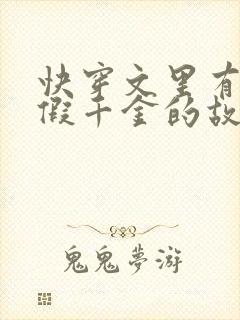 快穿文里有
假千金的故
鬼鬼夢游